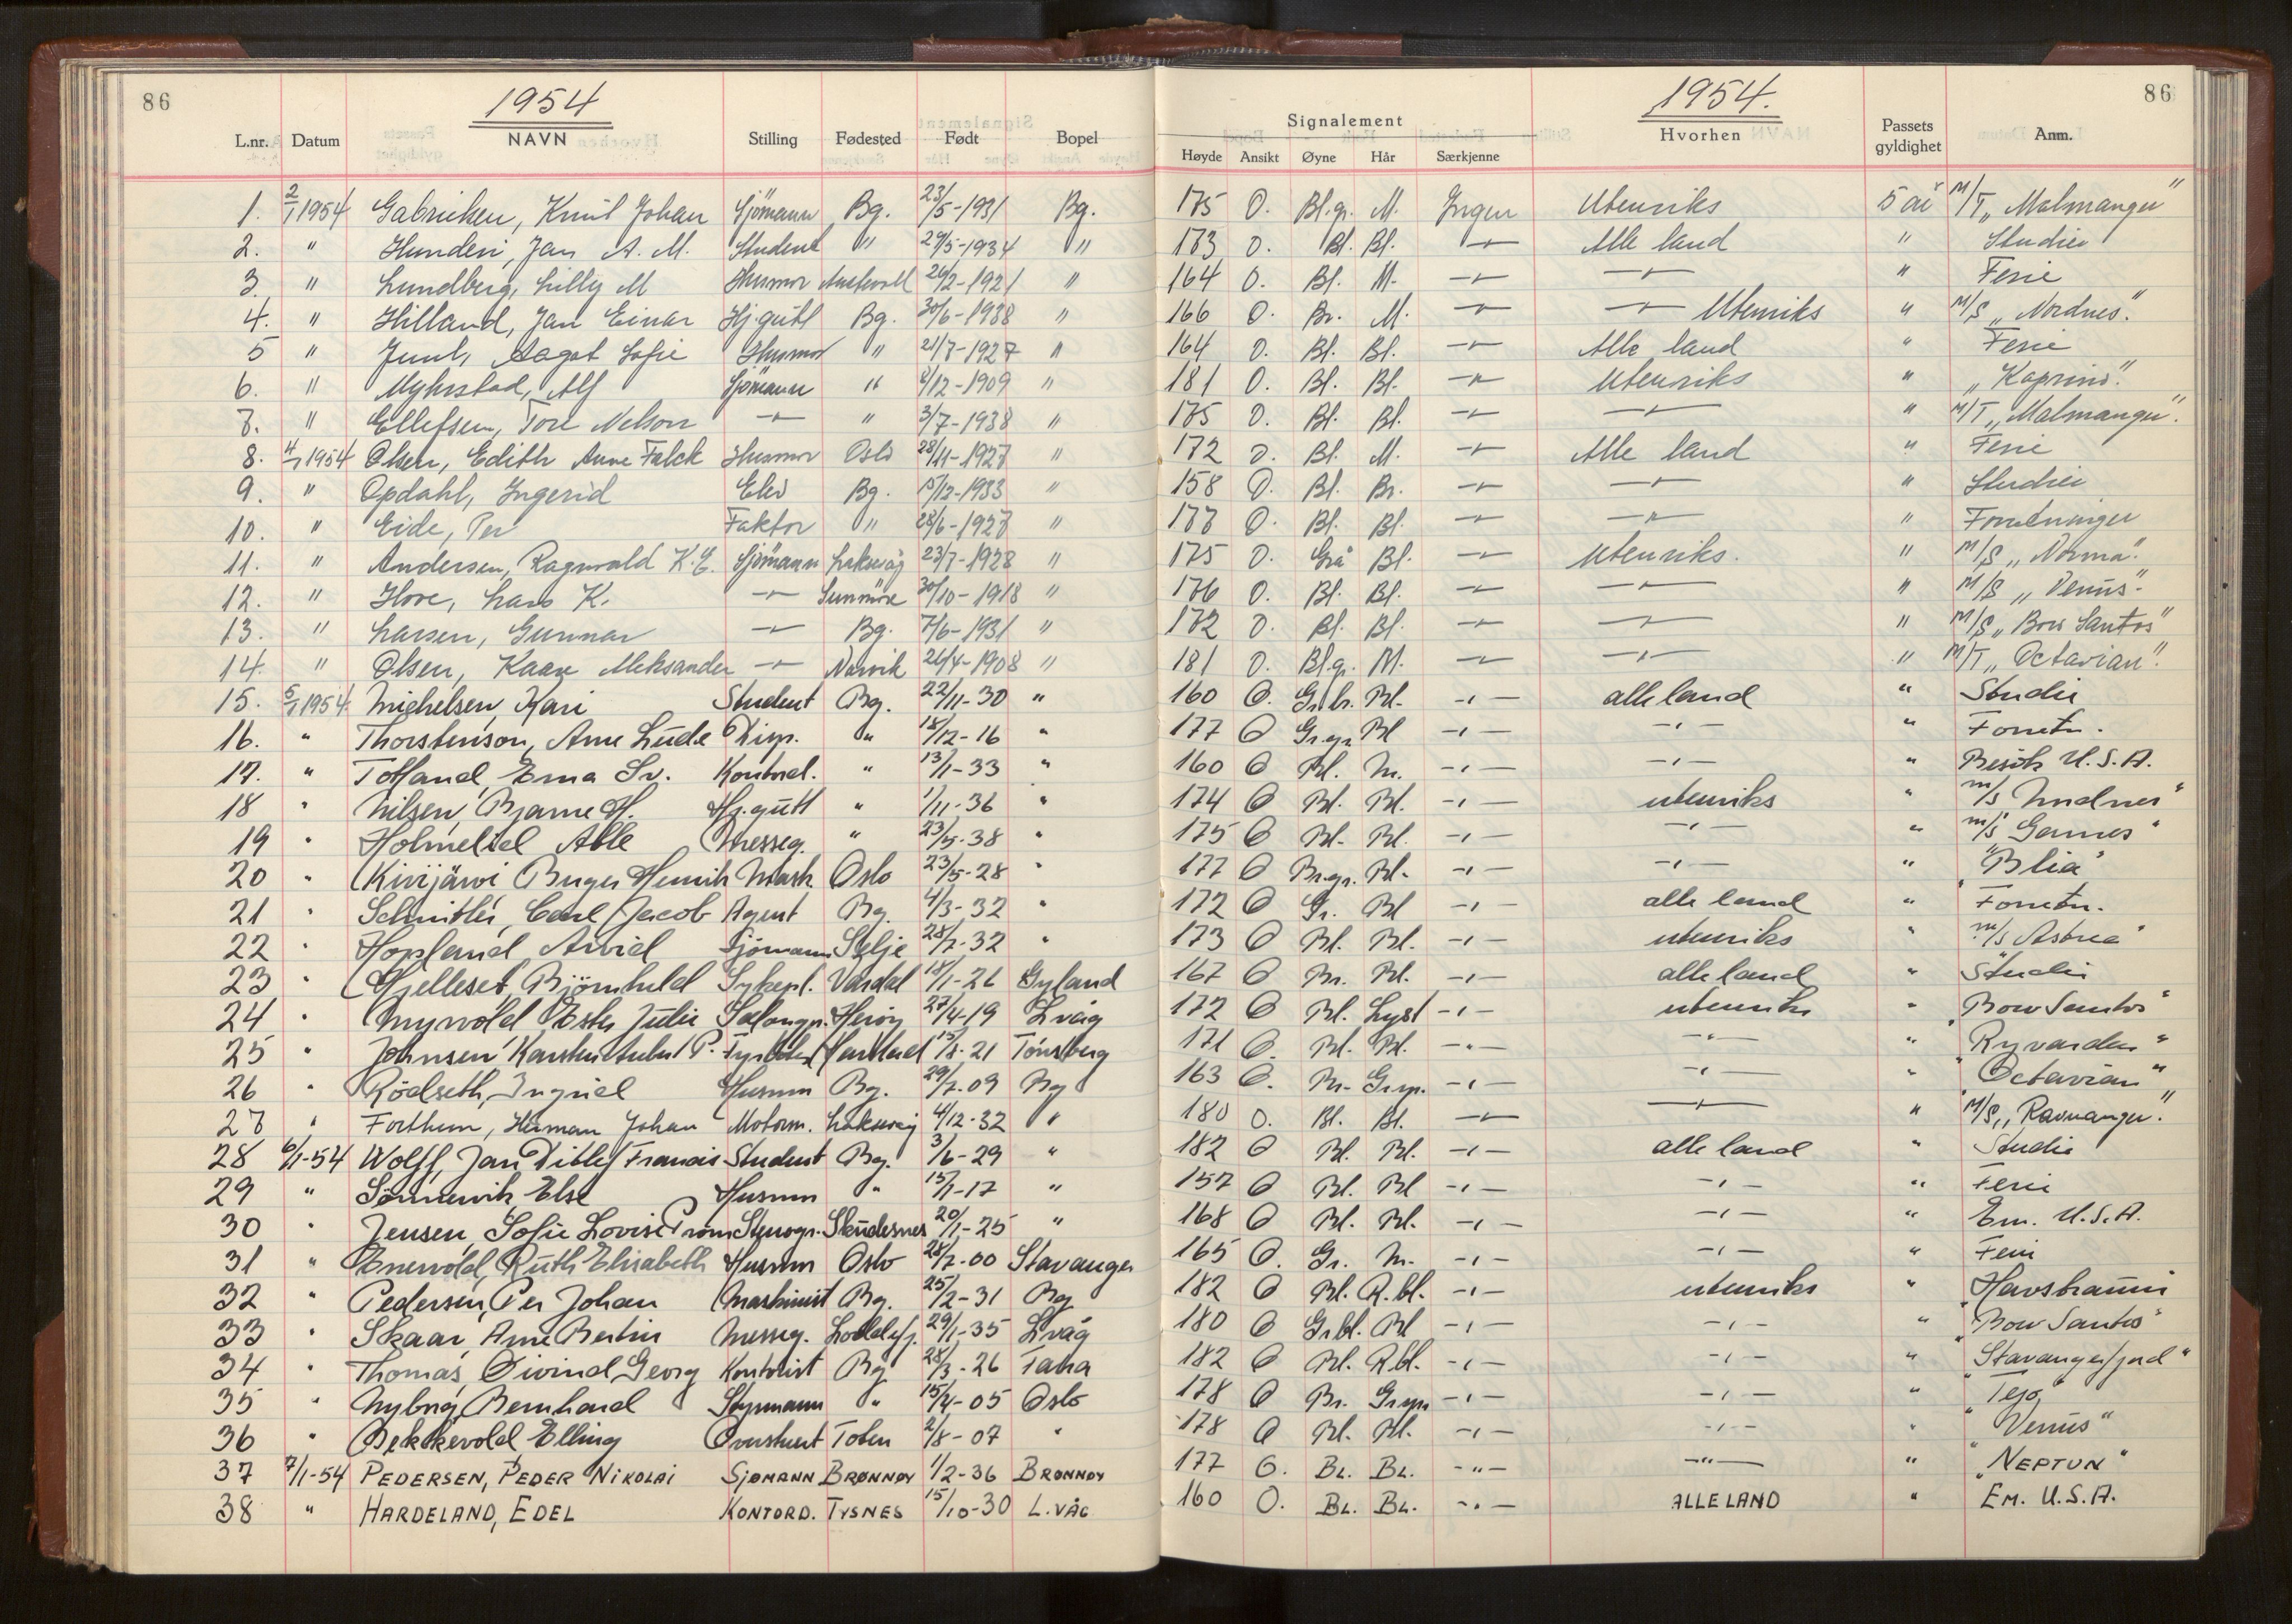 86 1954 1954. 86
L.nr. Datum NAVN Stilling Fødested Født Bopel Signalement Høyde Ansikt Øyne Hår Særkjenne Hvorhen Passets gyldighet Anm.
1. 2/1 1954 Gabrielsen, Knut Johan Sjömann Bg. 23/5-1931 Bg. 175 O. Bl.gr. M. Ingen Utenriks 5 år M/T „Malmanger"
2. " Hunderi, Jan A. M. Student " 29/5-1934 " 173 O. Bl. Bl. -"- Alle land " Studier
3. " Lundberg, Lilly M Husmor Austevoll 26/2-1921 " 164 O. Bl. M. -"- -"- " Ferie
4. " Hilland, Jan Einar Hj.gutt Bg. 30/6-1938 " 166 O. Br. M. -"- -"- Utenriks " M/S „Nordnes".
5 " Juul, Aagot Sofie Husmor " 21/7-1927 " 164 O. Bl. Bl. -"- Alle land " Ferie
6. " Myhrstad, Alf Sjömann " /12-1909 " 181 O. Bl. Bl. -"- Utenriks " „Kaprino".
7. " Ellefsen, Tore Nelson -"- " 3/7-1938 " 175 O. Bl. Bl. -"- -"- " M/T „Malmanger".
8. 4/1 1954 Olsen, Edith Anne Falck Husmor Oslo 28/11-1927 " 172 O. Bl. M. -"- Alle land " Ferie
9. " Opdahl, Ingerid Elev Bg. 15/12-1933 " 158 O. Bl. Br. -"- -"- " Studier
10. " Eide, Per Faktor " 28/6-1927 " 177 O. Bl. Bl. -"- -"- " Forretninger
11. " Andersen, Ragnvald K.E. Sjömann Laksevåg 23/7-1928 " 175 O. Grå Bl. -"- Utenriks. " M/S „Norma".
12. " Hove, Lars K. -"- Sunnmöre 30/10-1918 " 176 O. Bl. Bl. -"- -"- " M/S „Venus".
13. " Larsen, Gunnar -"- Bg. 7/6-1931 " 172 O. Bl. Bl. -"- -"- " M/S „Bow Santos"
14. " Olsen, Kaare Aleksander -"- Narvik 26/4-1908 " 181 O. Bl.gr. M. -"- -"- " M/T „Octavian".
15. 5/1 1954 Michelsen, Kari Student Bg. 22/11-30 " 160 O. Gr.br. Bl. -"- alle land " Studie
16. " Thorstenson, Arne Lude Disp. " 18/12-16 " 177 O Gr.gr. Bl -"- -"- " Forretn.
17. " Totland, Erna Sv. Kontord. " 13/1-33 " 160 O Bl. M. -"- -"- " Besök U.S.A.
18 " Nilsen, Bjarne H. Hj.gutt " 1/11-36 " 174 O Bl. Bl. -"- utenriks " m/s
19 " Holmelid Atle Messeg. " 23/5-38 " 175 O Bl. Bl. -"- -"- " m/s Garnes"
20 " Kivijärvi Birger Henrik Mask Oslo 23/5-28 " 177 O Br.gr. Bl. -"- -"- " „Blia"
21 " Schnitler, Carl Jacob Agent Bg. 4/3-32 " 172 O Gr. Bl -"- alle land " Forretn.
22 " Hopland Arvid Sjömann Selje 28/7-32 " 173 O Bl. Bl. -"- utenriks " m/s Astrea"
23 " Hjelleset Björnhild Sykepl. Vardal 18/1-26 Gyland 167 O Br. Bl. -"- alle land " Studie
24 " Myrvold Ester Julie Salongp. Heröy 27/4-19 L.våg 172 O Bl. Lyst -"- utenriks " „Bow Santos"
25 " Johnsen Karsten P. Harstad 15/8-21 Tönsberg 171 O. Bl. Bl. -"- -"- " „Ryvarden"
26 " Rödseth, Ingrid Husmor Bg. 29/7-09 Bg 163 O. Br. Gr.spr. -"- -"- " „Octavian"
27 " Forthun, Herman Johan Motorm. Laksevåg 4/12-32 " 180 O. Bl. Bl. -"- -"- " M/S „Ravnanger".
28 6/1-54 Wolff, Jan Ditlef Francis Student Bg. 3/6-29 " 182 O Bl. Bl. -"- alle land " Studie
29 " Sönnervik Else Husmor " 15/1-17 " 157 O Bl. Bl -"- -"- " Ferie
30 " Jensen, Sofie Lovise Prom Stenogr. Skudesnes 20/1-25 " 168 O Bl. Bl. -"- -"- " Em. U.S.A.
31 " Enervold, Ruth Elisabeth Husmor Oslo 28/7-00 Stavanger 165 O. Gr. M. -"- -"- " Ferie
32 " Pedersen, Per Johan Maskinist Bg. 25/2-31 Bg 182 O Bl. R.bl. -"- utenriks " „Havstraum
33 " Skaar, Arne Bertin Messeg. Loddefj. 29/1-35 L.våg 180 O Gr.bl. Bl -"- -"- " „Bow Santos"
34 " Thomas, Øivind Georg Kontorist Bg 28/3-26 Fana 182 O Bl. R.bl. -"- -"- " „Stavangerfjord"
35 " Nyborg, Bernhard Styrmann " 15/4-05 Oslo 178 O Br. Gr.spr. -"- -"- " „Tejo"
36 " Bekkevold Elling Overstuert Toten 2/8-07 " 178 O Bl. Bl. -"- -"- " „Venus"
37 7/1-54 PEDERSEN, PEDER NIKOLAI SJØMANN BRØNNØY 1/2-36 BRØNNØY 177 O. BL. BL. -"- -"- " „NEPTUN"
38 " HARDELAND, EDEL KONTORD. TYSNES 15/10-30 L.VÅG 160 O. BL. BL. -"- ALLE LAND " EM. U.S.A.